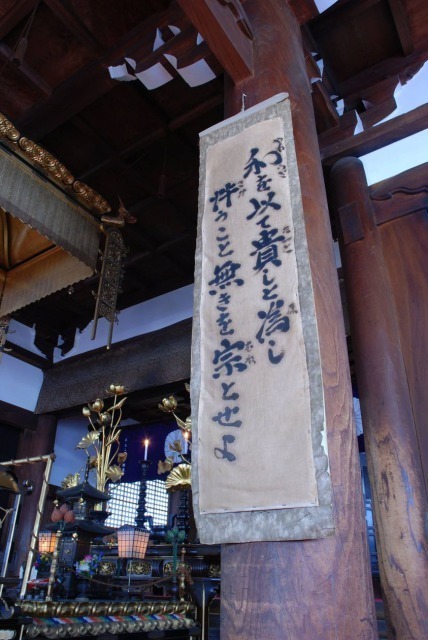 和を以て貴しと為し
忤うこと無きを宗とせよ